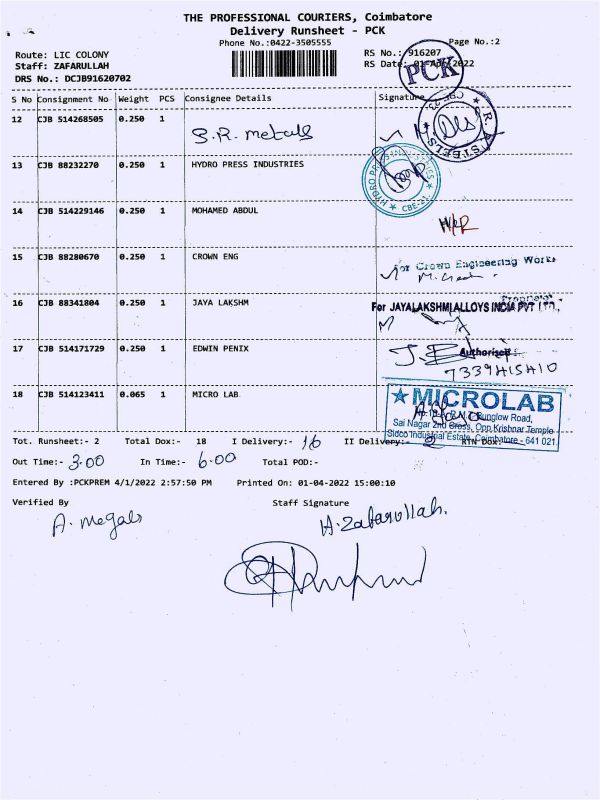 THE PROFESSIONAL COURIERS, Coimbatore
Delivery Runsheet - PCK
Phone No.:0422-3505555
Page No.:2
Route: LIC COLONY
RS No.: 916207
Staff: ZAFARULLAH
RS Date: 01 Apr 2022
PCK
DRS No.: DCJB91620702
S No Consignment No Weight PCS Consignee Details Signature
12 CJB 514268505 0.250 1 S.R. metals
S.R. STEELS ★ CBE-23 ★
13 CJB 88232270 0.250 1 HYDRO PRESS INDUSTRIES
HYDRO PRESS INDUSTRIES ★ CBE-21 ★
14 CJB 514229146 0.250 1 MOHAMED ABDUL
H/R
15 CJB 88280670 0.250 1 CROWN ENG
For Crown Engineering Works
Proprietor
16 CJB 88341804 0.250 1 JAYA LAKSHM
For JAYALAKSHMI ALLOYS INDIA PVT LTD.,
17 CJB 514171729 0.250 1 EDWIN PENIX
Authorised
18 CJB 514123411 0.065 1 MICRO LAB
★ MICROLAB
Bunglow Road,
Sai Nagar 2nd Cross, Opp.Krishnar Temple
Sidco Industrial Estate, Coimbatore - 641 021.
Tot. Runsheet:- 2 Total Dox:- 18 I Delivery:- 16 II Delivery:- 2 RTN Dox:-
Out Time:- 3.00 In Time:- 6.00 Total POD:-
Entered By :PCKPREM 4/1/2022 2:57:50 PM Printed On: 01-04-2022 15:00:10
Verified By Staff Signature
A. Megala H. Zafarullah.